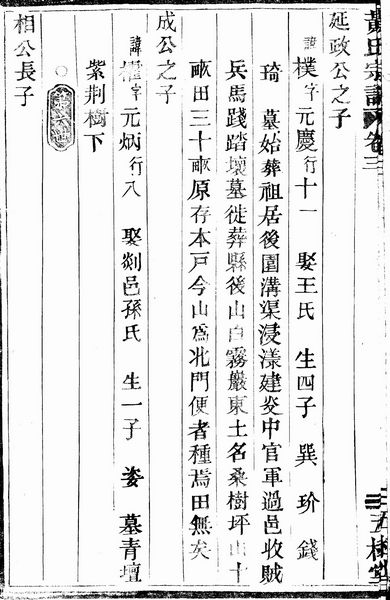 黃氏宗譜 卷三
延政公之子
諱樸字元慶行十一 娶王氏 生四子 巽 玠 錢
琦 墓始葬祖居後園溝渠浸漾建炎中官軍過邑收賊
兵馬踐踏壞墓徙葬縣後山白霧巖東土名桑樹坪山十
畝田三十畝原存本戶今山爲北門便者種焉田無矣
成公之子
諱權字元炳行八 娶剡邑孫氏 生一子 姿 墓青壇
紫荆樹下
第六世
相公長子